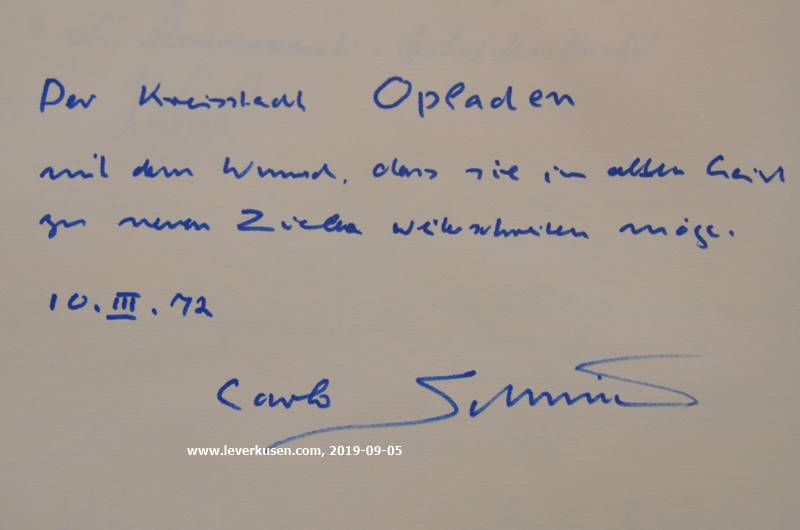 Der Kreisstadt Opladen
mit dem Wunsch, dass sie im alten Geist
zu neuen Zielen weiterschreiten möge.
10. III. 72
Carlo Schmid
www.leverkusen.com, 2019-09-05